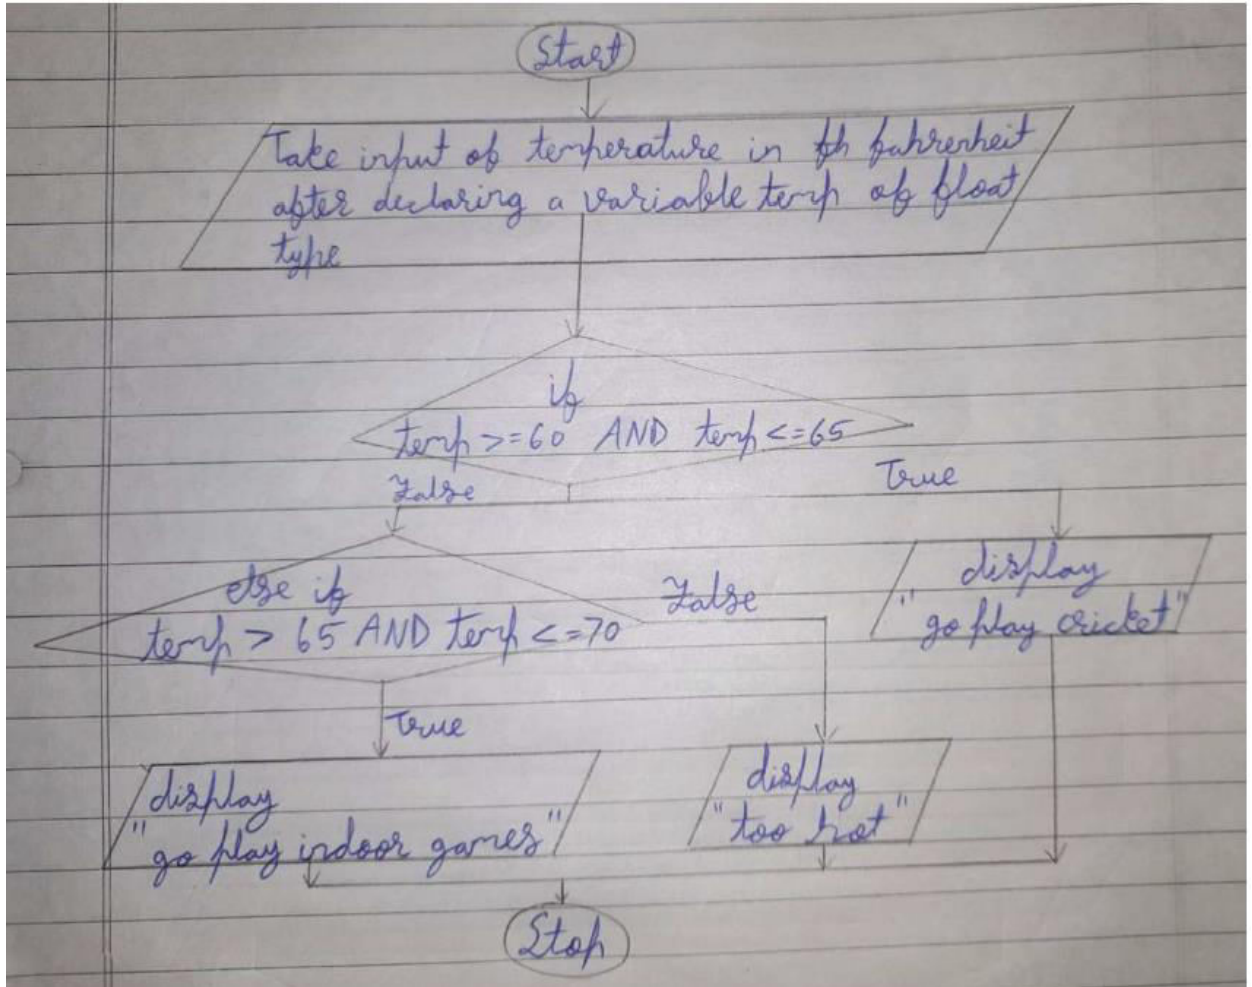 Start
Take input of temperature in fahrenheit
after declaring a variable temp of float
type
if
temp >=60 AND temp <=65
False
True
else if
temp > 65 AND temp <=70
False
display
"go play cricket"
True
display
"go play indoor games"
display
"too hot"
Stop